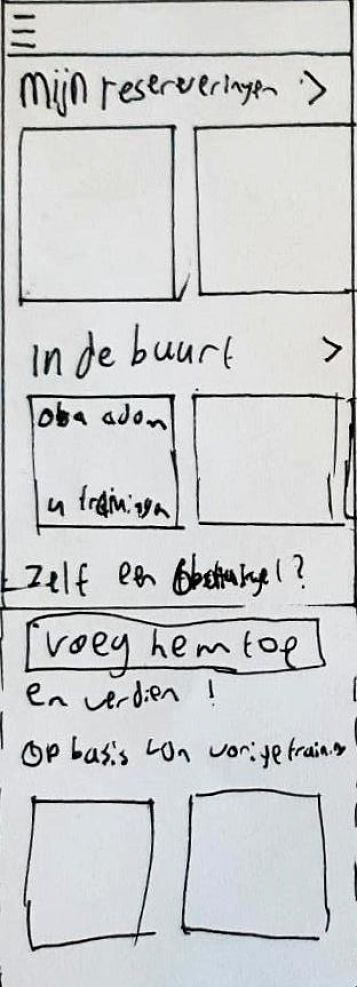 Mijn reserveringen >
In de buurt >
oba
4 trainingen
Zelf een ?
Voeg hem toe
en verdien !
Op basis van vorige training